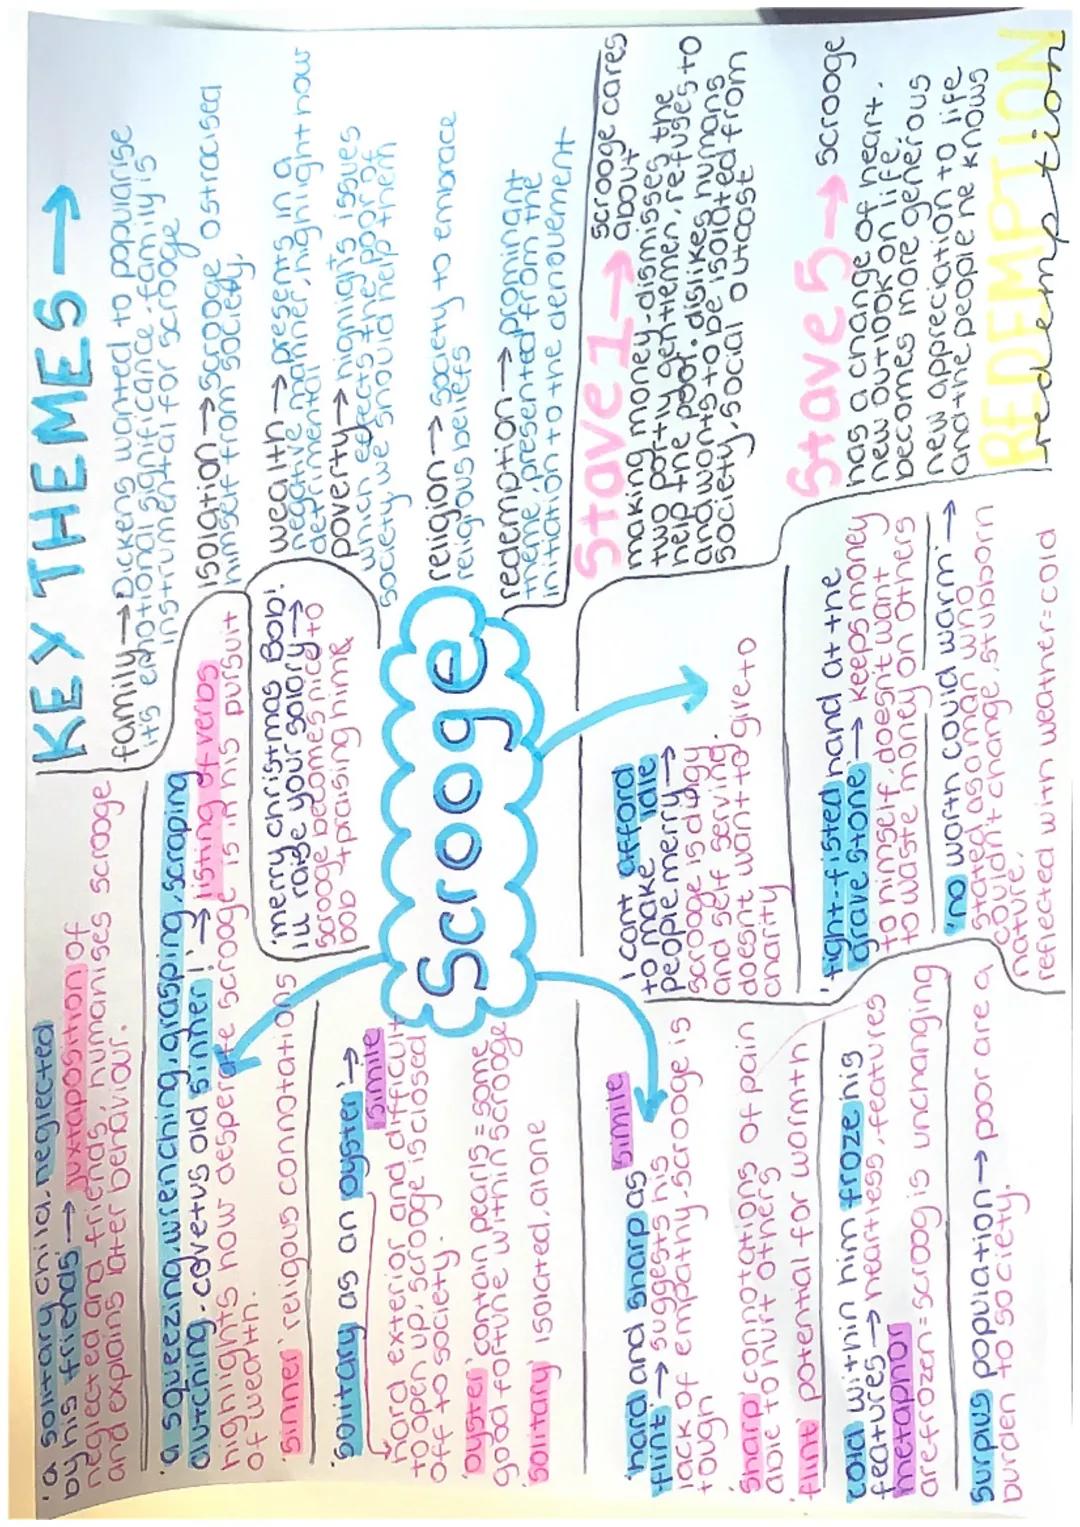 'a solitary child, neglected
by his friends → juxtaposition of
neglected and friends, humanises scrooge
and explains later behaviour.
'a squeezing, wrenching, grasping, scraping
clutching, covetus old sinner!' → listing of verbs
highlights how desperate scrooge is in his pursuit
of wealth.
'sinner' religous connotations
'solitary as an oyster' →
simile
hard exterior and difficult
to open up, scrooge is closed
off to society.
'oyster' contain pearls = some
good fortune within scrooge
'solitary' isolated, alone
'hard and sharp as
flint' → suggests his simile
lack of empathy - scrooge is
tough
'sharp' connotations of pain
able to hurt others
'flint' potential for wormth
cold within him froze his
features → heartless, features
metaphor
are frozen = scroog is unchanging
surplus population → poor are a
burden to society.
'merry christmas Bob!
ill raise your salary' →
scrooge becomes nice to
bob + praising him &
Scrooge
'I cant afford
to make idle
people merry' →
scrooge is dingy
and self serving.
doesnt want to give to
charity
'tight-fisted hand at the
grave stone' → keeps money
to himself, doesn't want
to waste money on others
'no worth could warm' →
stated as a man who
couldn't change, stubborn
nature.
reflected with weather = cold
KEY THEMES →
family → Dickens wanted to popularise
it's emotional significance, family is
instrumental for scrooge
isolation → scrooge ostracised
himself from society.
wealth → presents in a
negative manner, highlight how
detrimental
poverty → highlights issues
which effects the poor of
society we should help them
religion → society to embrace
religous beliefs
redemption → prominant
theme, presented from the
initiation to the denouement
Stave 1 → scrooge cares
about
making money - dismisses the
two portly gentlemen, refuses to
help the poor. dislikes humans
and wants to be isolated from
society, social outcast
Stave 5 → scrooge
has a change of heart.
new outlook on life.
becomes more generous
new appreciation to life
and the people he knows
REDEMPTION
redemption